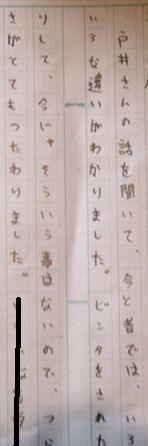 戸井さんの話を聞いて、今と昔では、いろ
いろな違いがわかりました。ビンタをされた
りして、今じゃそういう事はないので、つら
さがとてもつたわりました。